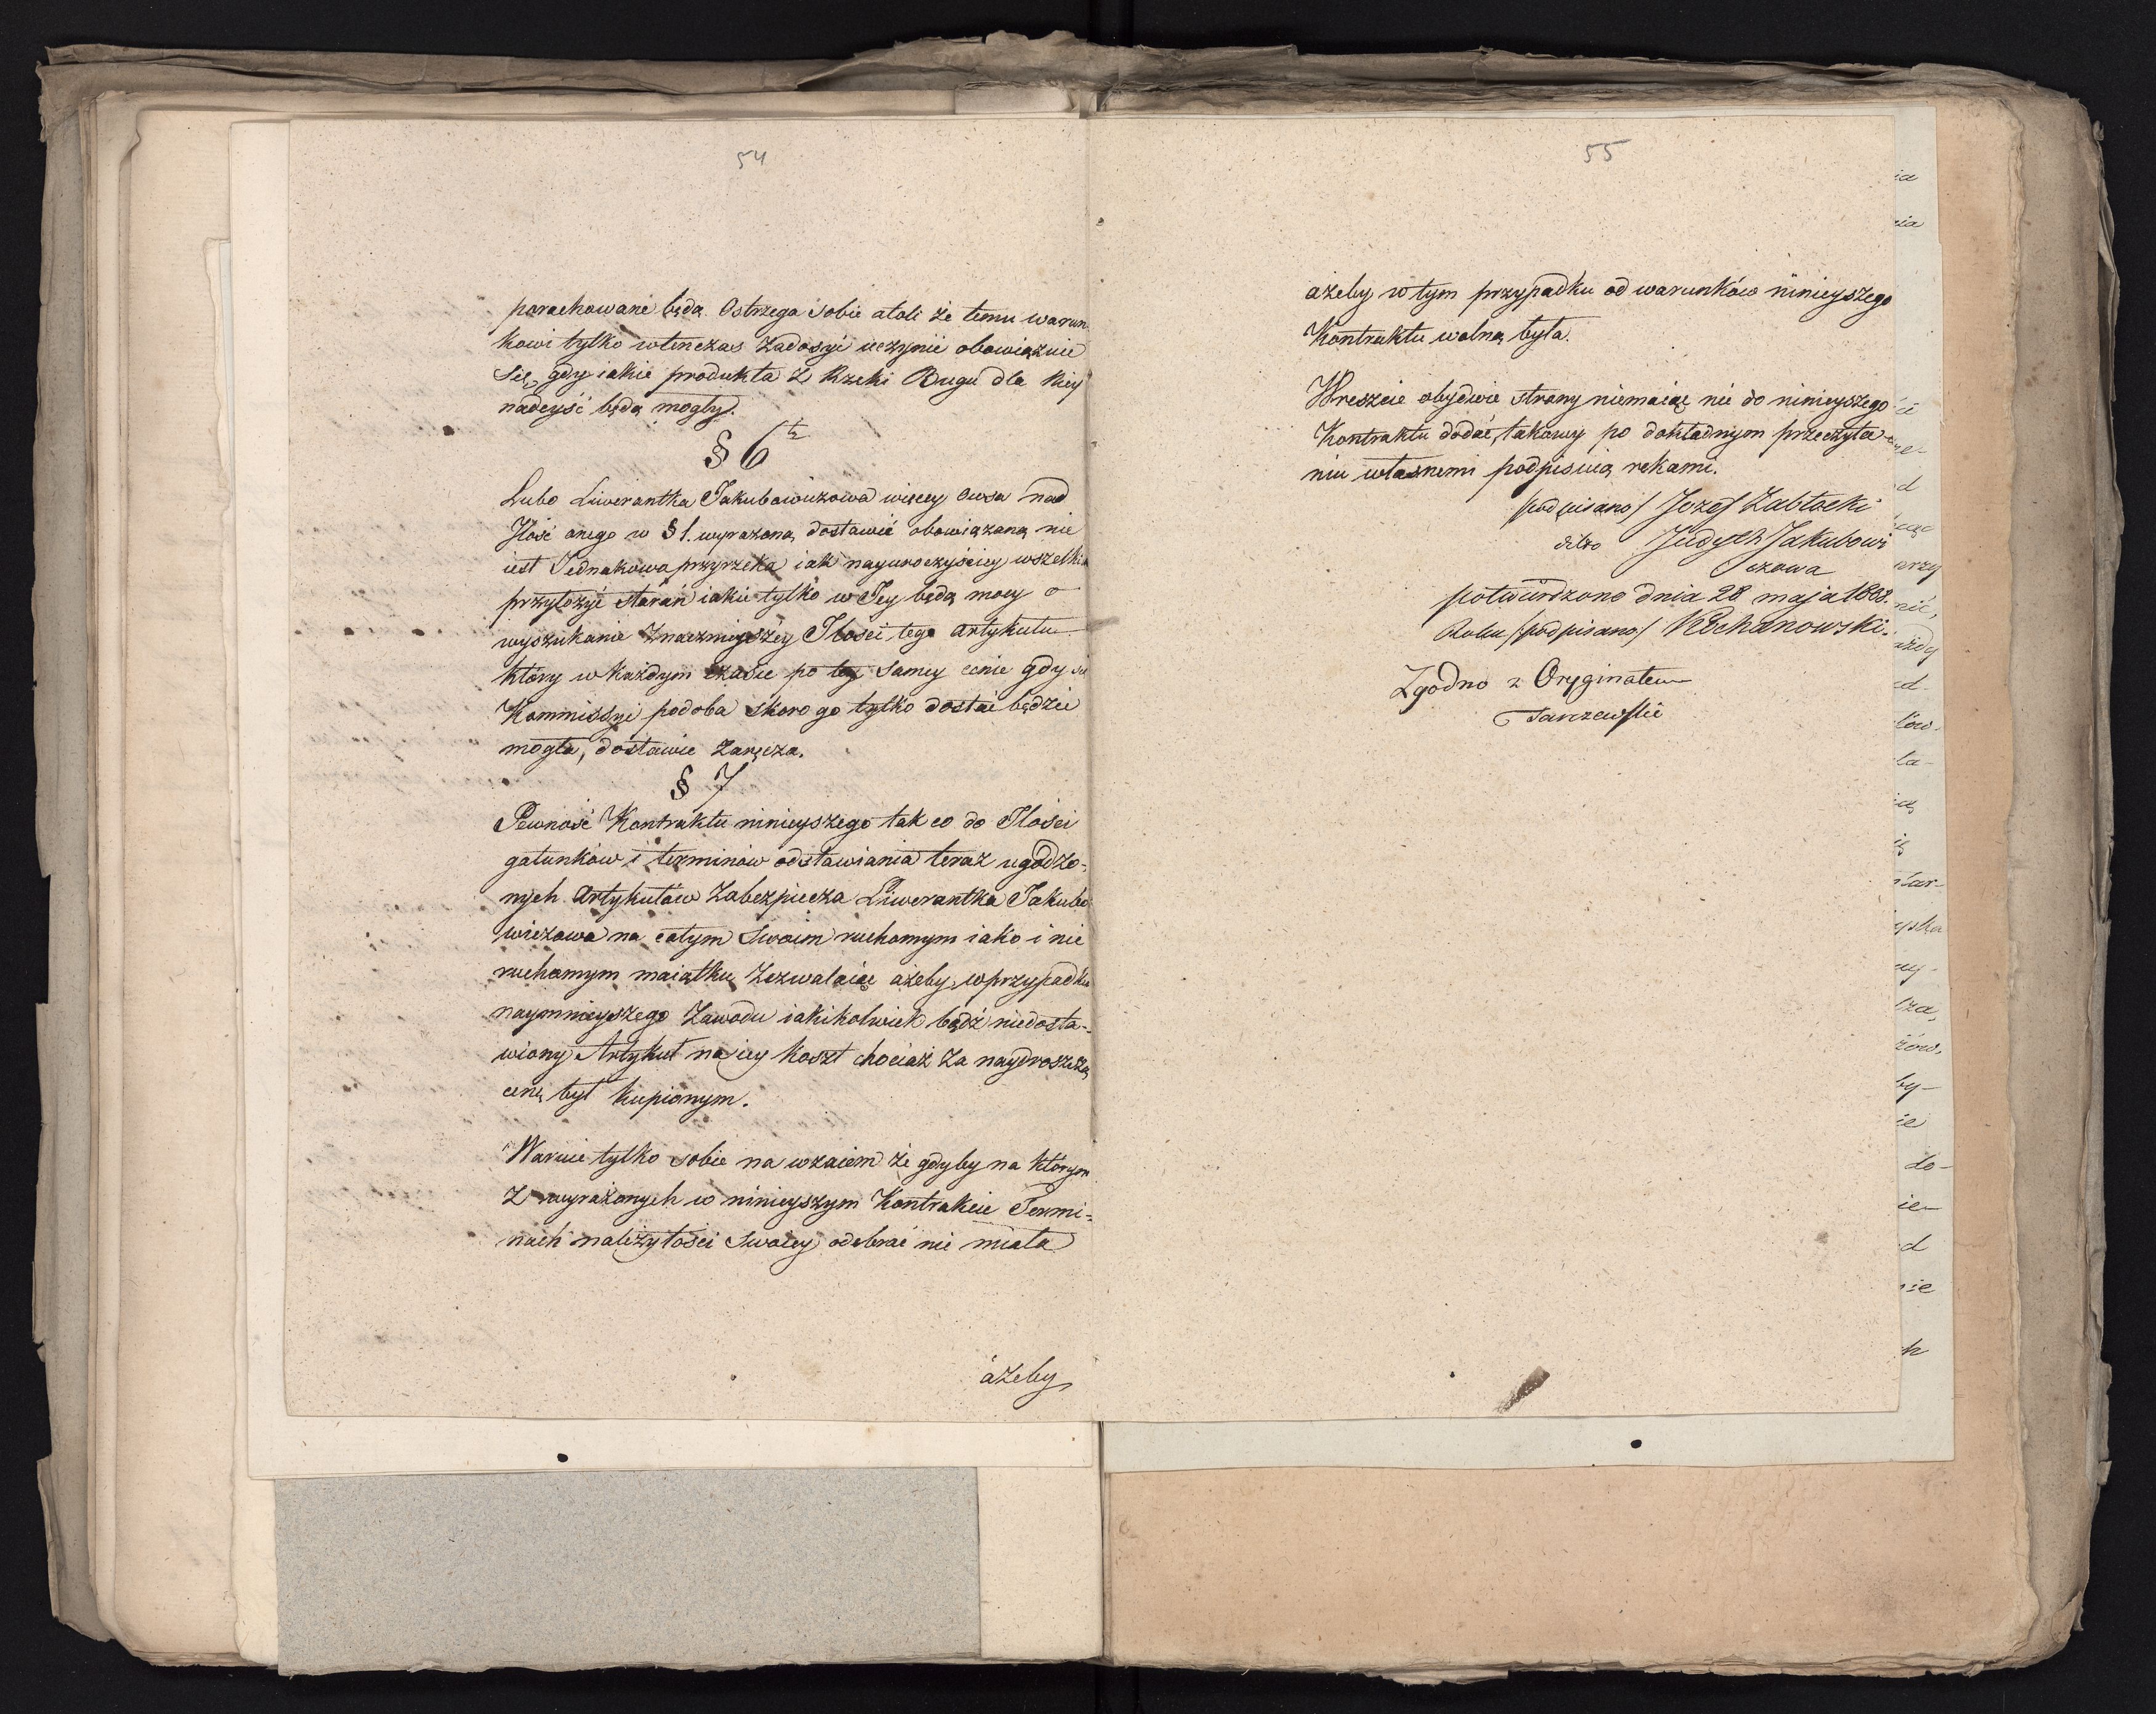 54
porachowane będą. Ostrzega sobie atoli że temu warun
kowi tylko wtenczas zadosyć uczynić obowiązuie
się, gdy iakie produkta z Rzeki Bugu dla Niey
nadeyść będą mogły.
§ 6
Lubo Liwerantka Jakubowiczowa więcey owsa nad
Ilość onego w § 1. wyrażoną dostawić obowiązaną nie
iest Jednakowa przyrzeka iak nayuroczyściey wszelkich
przyłożyć starań iakie tylko w Jey będą mocy o
wyszukanie znacznieyszey Ilości tego artykułu
który w każdym czasie po tey samey cenie gdy się
Kommissyi podoba skoro go tylko dostać będzie
mogła, dostawić zaręcza.
§ 7
Pewność Kontraktu ninieyszego tak co do Ilości
gatunków i terminów odstawiania teraz ugodzo=
nych Artykułów zabezpiecza Liwerantka Jakubo
wiczowa na całym swoim ruchomym iako i nie
ruchomym maiątku, zezwalaiąc ażeby w przypadku
naymnieyszego zawodu iakikolwiek bądź niedosta=
wiony Artykuł na iey koszt chociaż za naydroższą
cenę był kupionym.
Waruie tylko sobie na wzaiem że gdyby na którym
z wyrażonych w ninieyszym Kontrakcie Termi=
nach należytości swoiey odebrać nie miała
ażeby
55
ażeby w tym przypadku od warunków ninieyszego
Kontraktu wolną była.
Wreszcie obydwie strony niemaiąc nic do ninieyszego
Kontraktu dodać, takowy po dokładnym przeczyta
niu własnemi podpisuią rękami.
podpisano/ Jozef Zabłocki
ditto Judyth Jakubowi
czowa
potwierdzono dnia 28 maja 1808.
Roku /podpisano/ Kochanowski.
Zgodno z Oryginałem